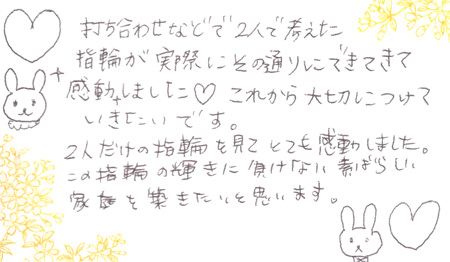 打ち合わせなどで2人で考えた
指輪が実際にその通りにできてきて
感動しました♡ これから大切につけて
いきたいです。
2人だけの指輪を見てとても感動しました。
この指輪の輝きに負けない素ばらしい
家族を築きたいと思います。